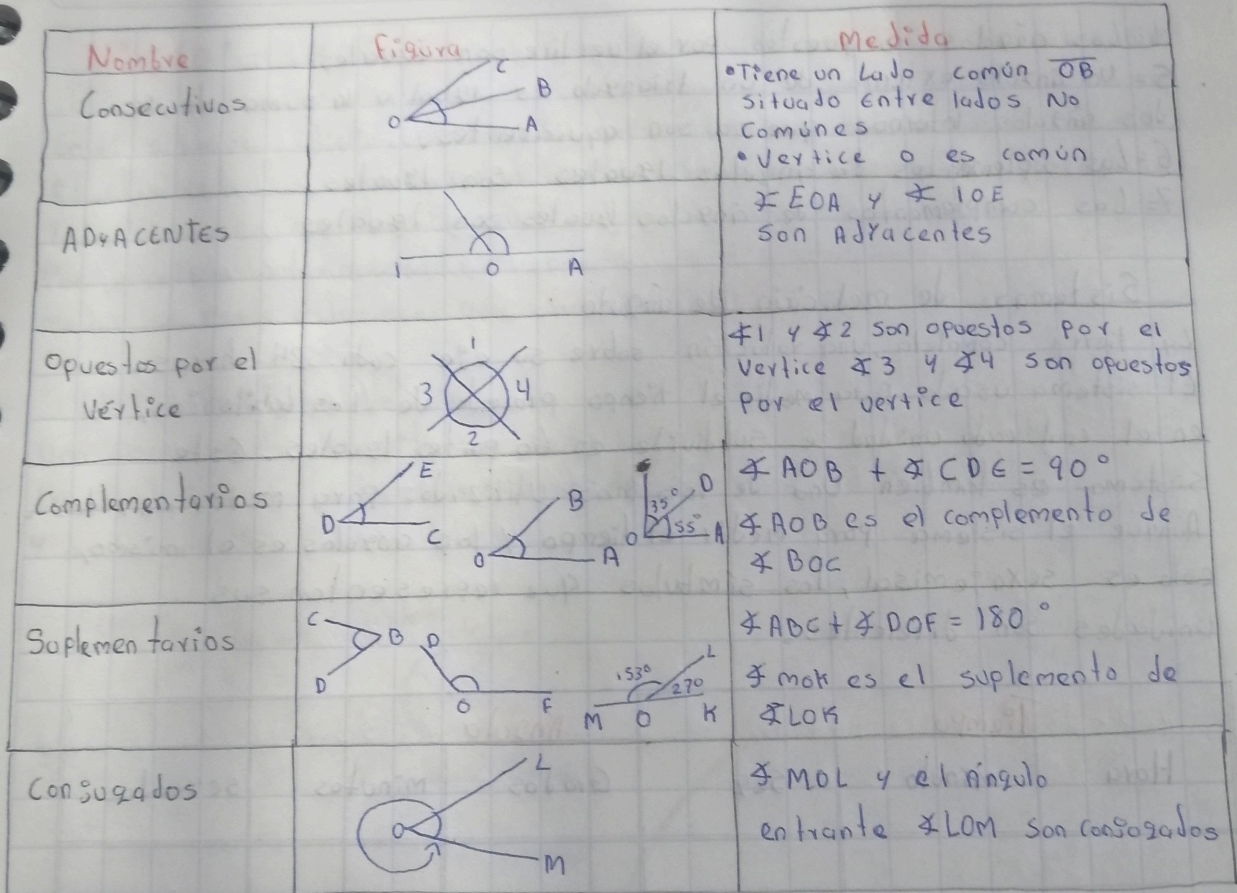 Nombre Figura Medida
Consecutivos
C
B
O A
•Tiene un Lado común OB
Situado Entre lados No
Comúnes
•Vertice o es común
ADYACENTES
I O A
∡ EOA y ∡ IOE
Son Adyacentes
Opuestos por el
Vértice
1
3 4
2
∡1 y ∡2 Son opuestos por el
Vertice ∡3 y ∡4 son opuestos
Por el vertice
Complementarios
E
D C
B
O A
35° D
O 55° A
∡ AOB + ∡ CDE = 90°
∡ AOB es el complemento de
∡ BOC
Suplementarios
C
B
D
D
O F
153° L
27°
M O K
∡ABC + ∡DOF = 180°
∡ mok es el suplemento de
∡LOK
Conjugados
L
O
M
∡ MOL y el ángulo
entrante ∡LOM Son conjogados